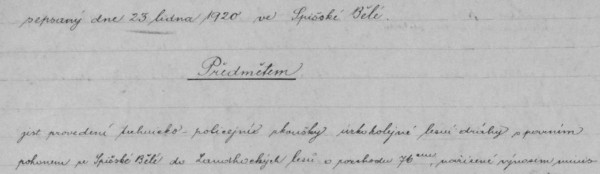 sepsaný dne 23 ledna 1920 ve Spišské Bělé.
Předmětem
jest provedení technicko-policejní zkoušky úzkokolejné lesní dráhy s parním
pohonem ze Spišské Bělé do lesů o rozchodu 76 cm, nařízené výnosem minis-